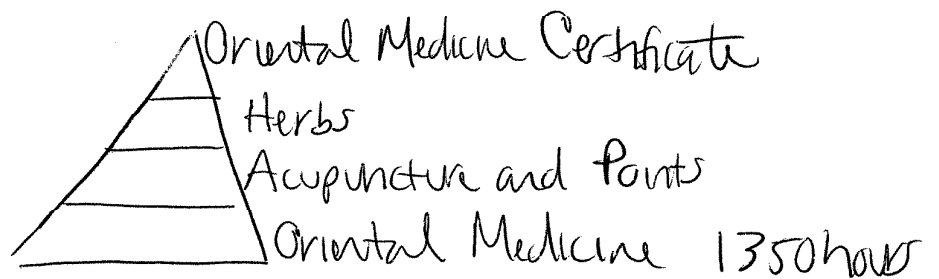 Oriental Medicine Certificate
Herbs
Acupuncture and Points
Oriental Medicine 1350 hours